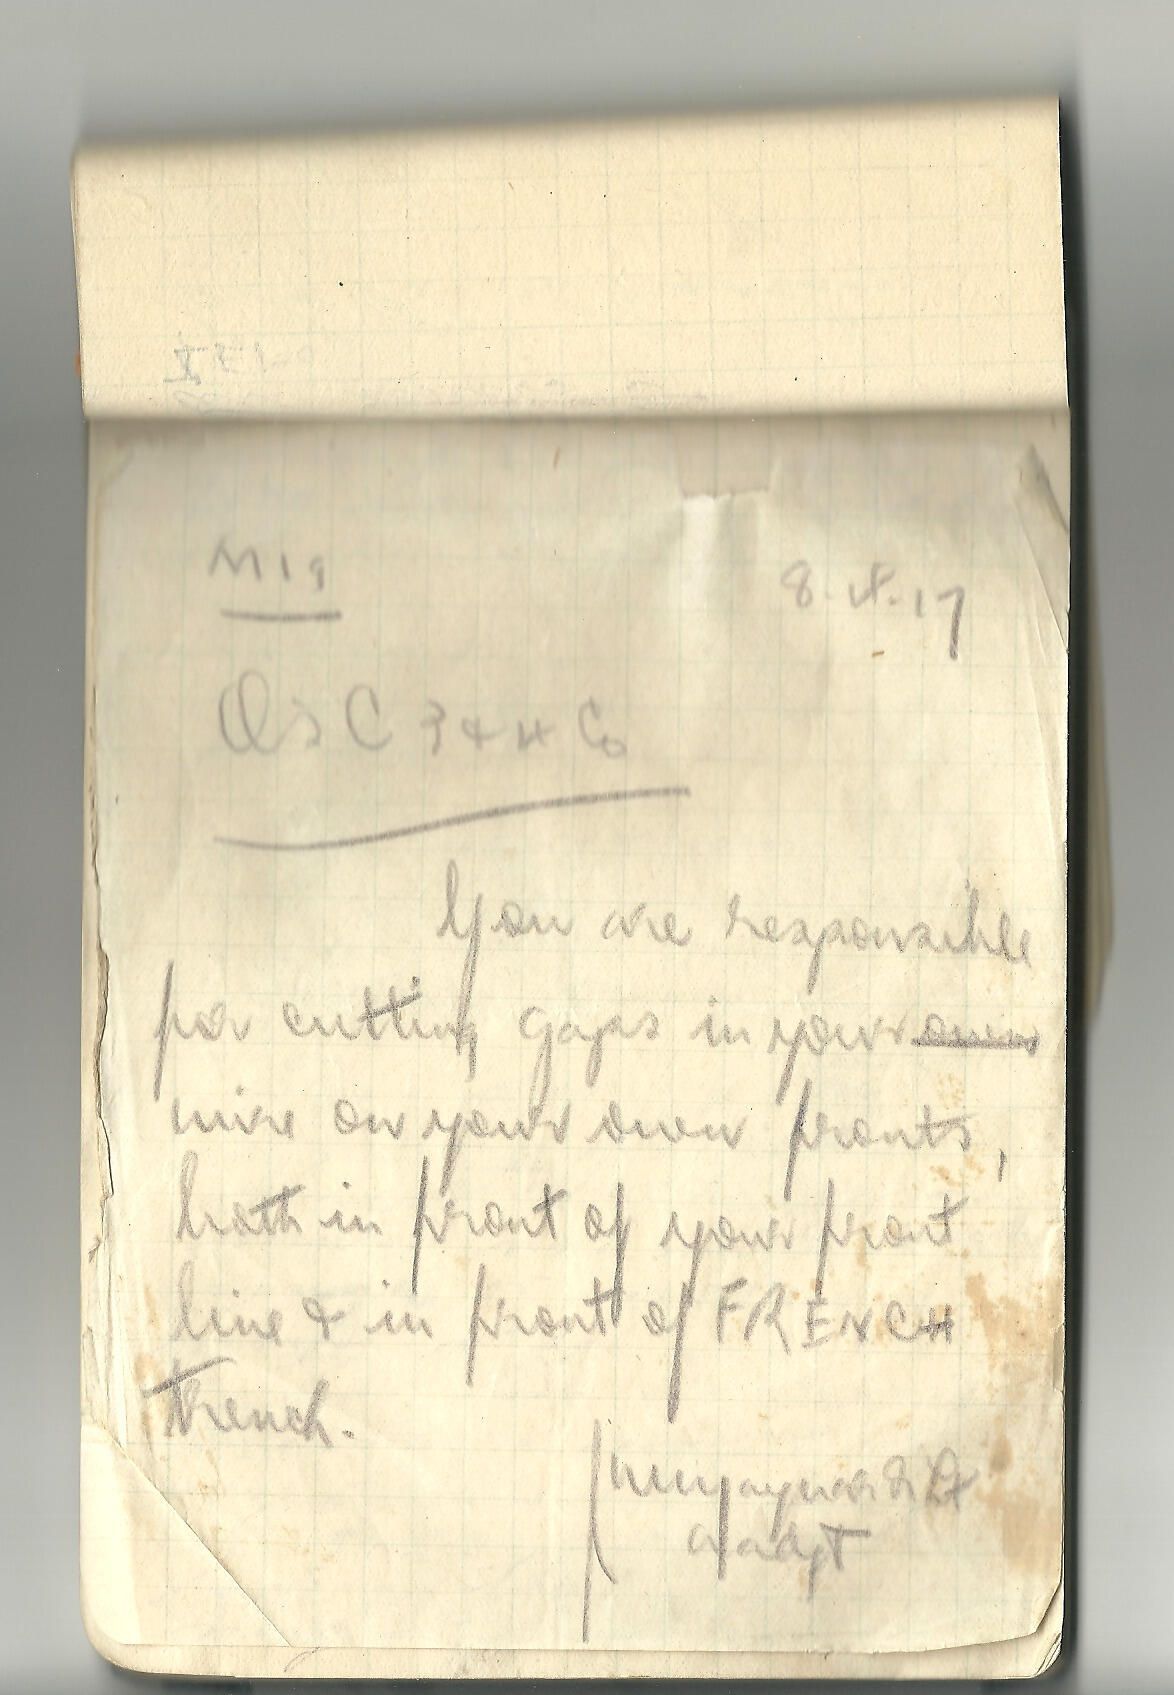 M 19
8.IX.17
Os C 3 & 4 Co
You are responsible
for cutting gaps in your own
wire on your own fronts,
both in front of your front
line & in front of FRENCH
trench.
Lt
a/adjt